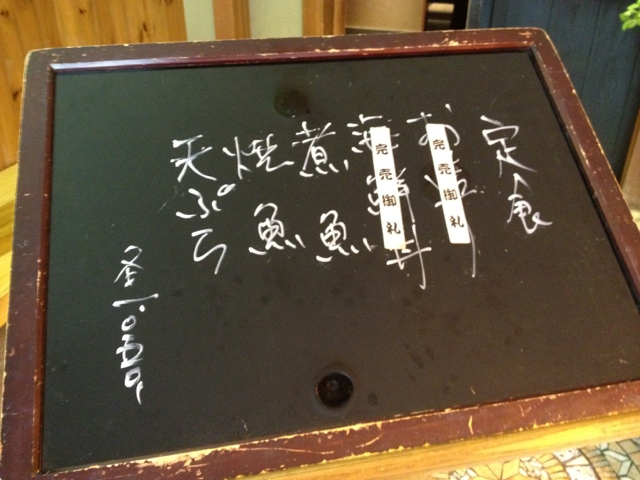 定食
お造り
完売御礼
海鮮丼
完売御礼
煮魚
焼魚
天ぷら
各一、〇五〇円